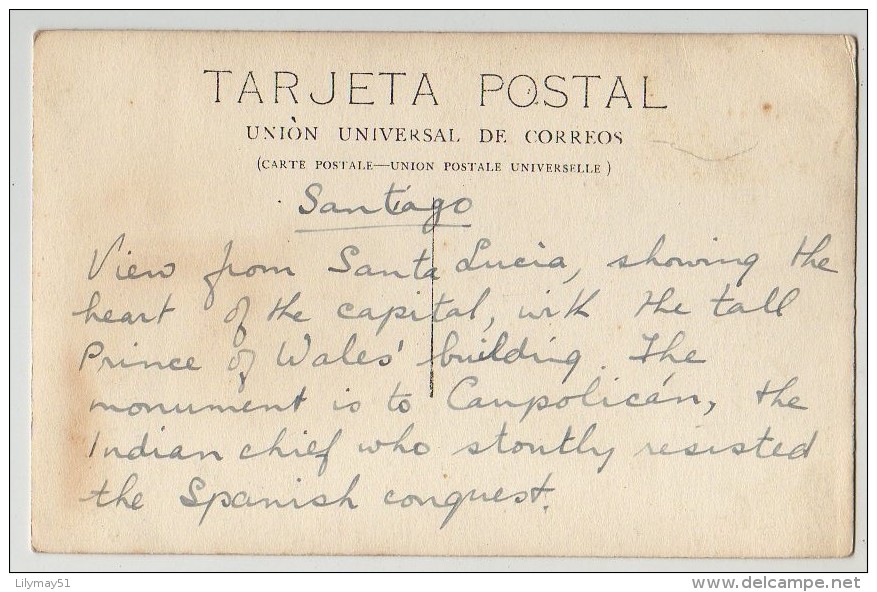 TARJETA POSTAL
UNIÒN UNIVERSAL DE CORREOS
(CARTE POSTALE—UNION POSTALE UNIVERSELLE)
Santiago
View from Santa Lucia, showing the
heart of the capital, with the tall
Prince of Wales' building. The
monument is to Caupolicán, the
Indian chief who stoutly resisted
the Spanish conquest.
Lilymay51
www.delcampe.net